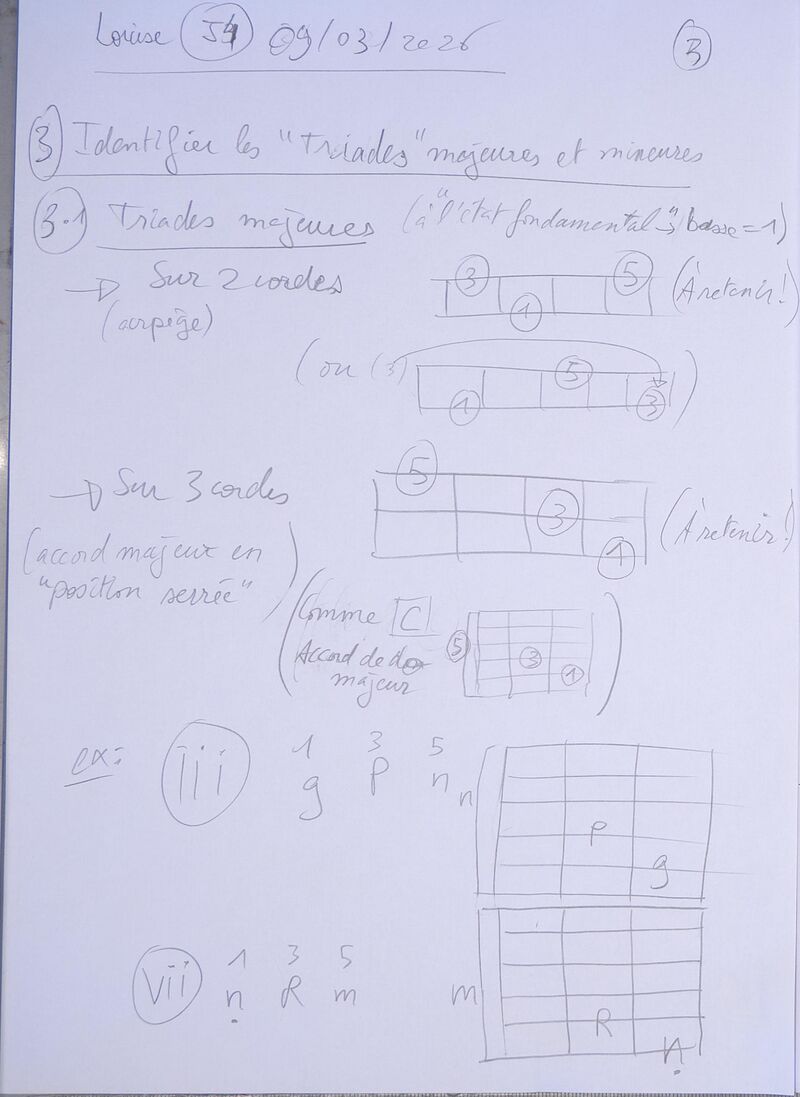 Louise J4 09/03/2026 3
3 Identifier les "Triades" majeures et mineures
3.1 Triades majeures (à "l'état fondamental" → basse = 1)
→ Sur 2 cordes 3 5 (À retenir!)
(arpège) 1
(ou (3) 5 )
1 3
→ Sur 3 cordes 5 3 1 (À retenir!)
(accord majeur en
"position serrée")
(Comme C
Accord de do 5 3 1
majeur )
ex: iii 1 3 5
g P n n
P
g
vii 1 3 5
n R m m
R
n